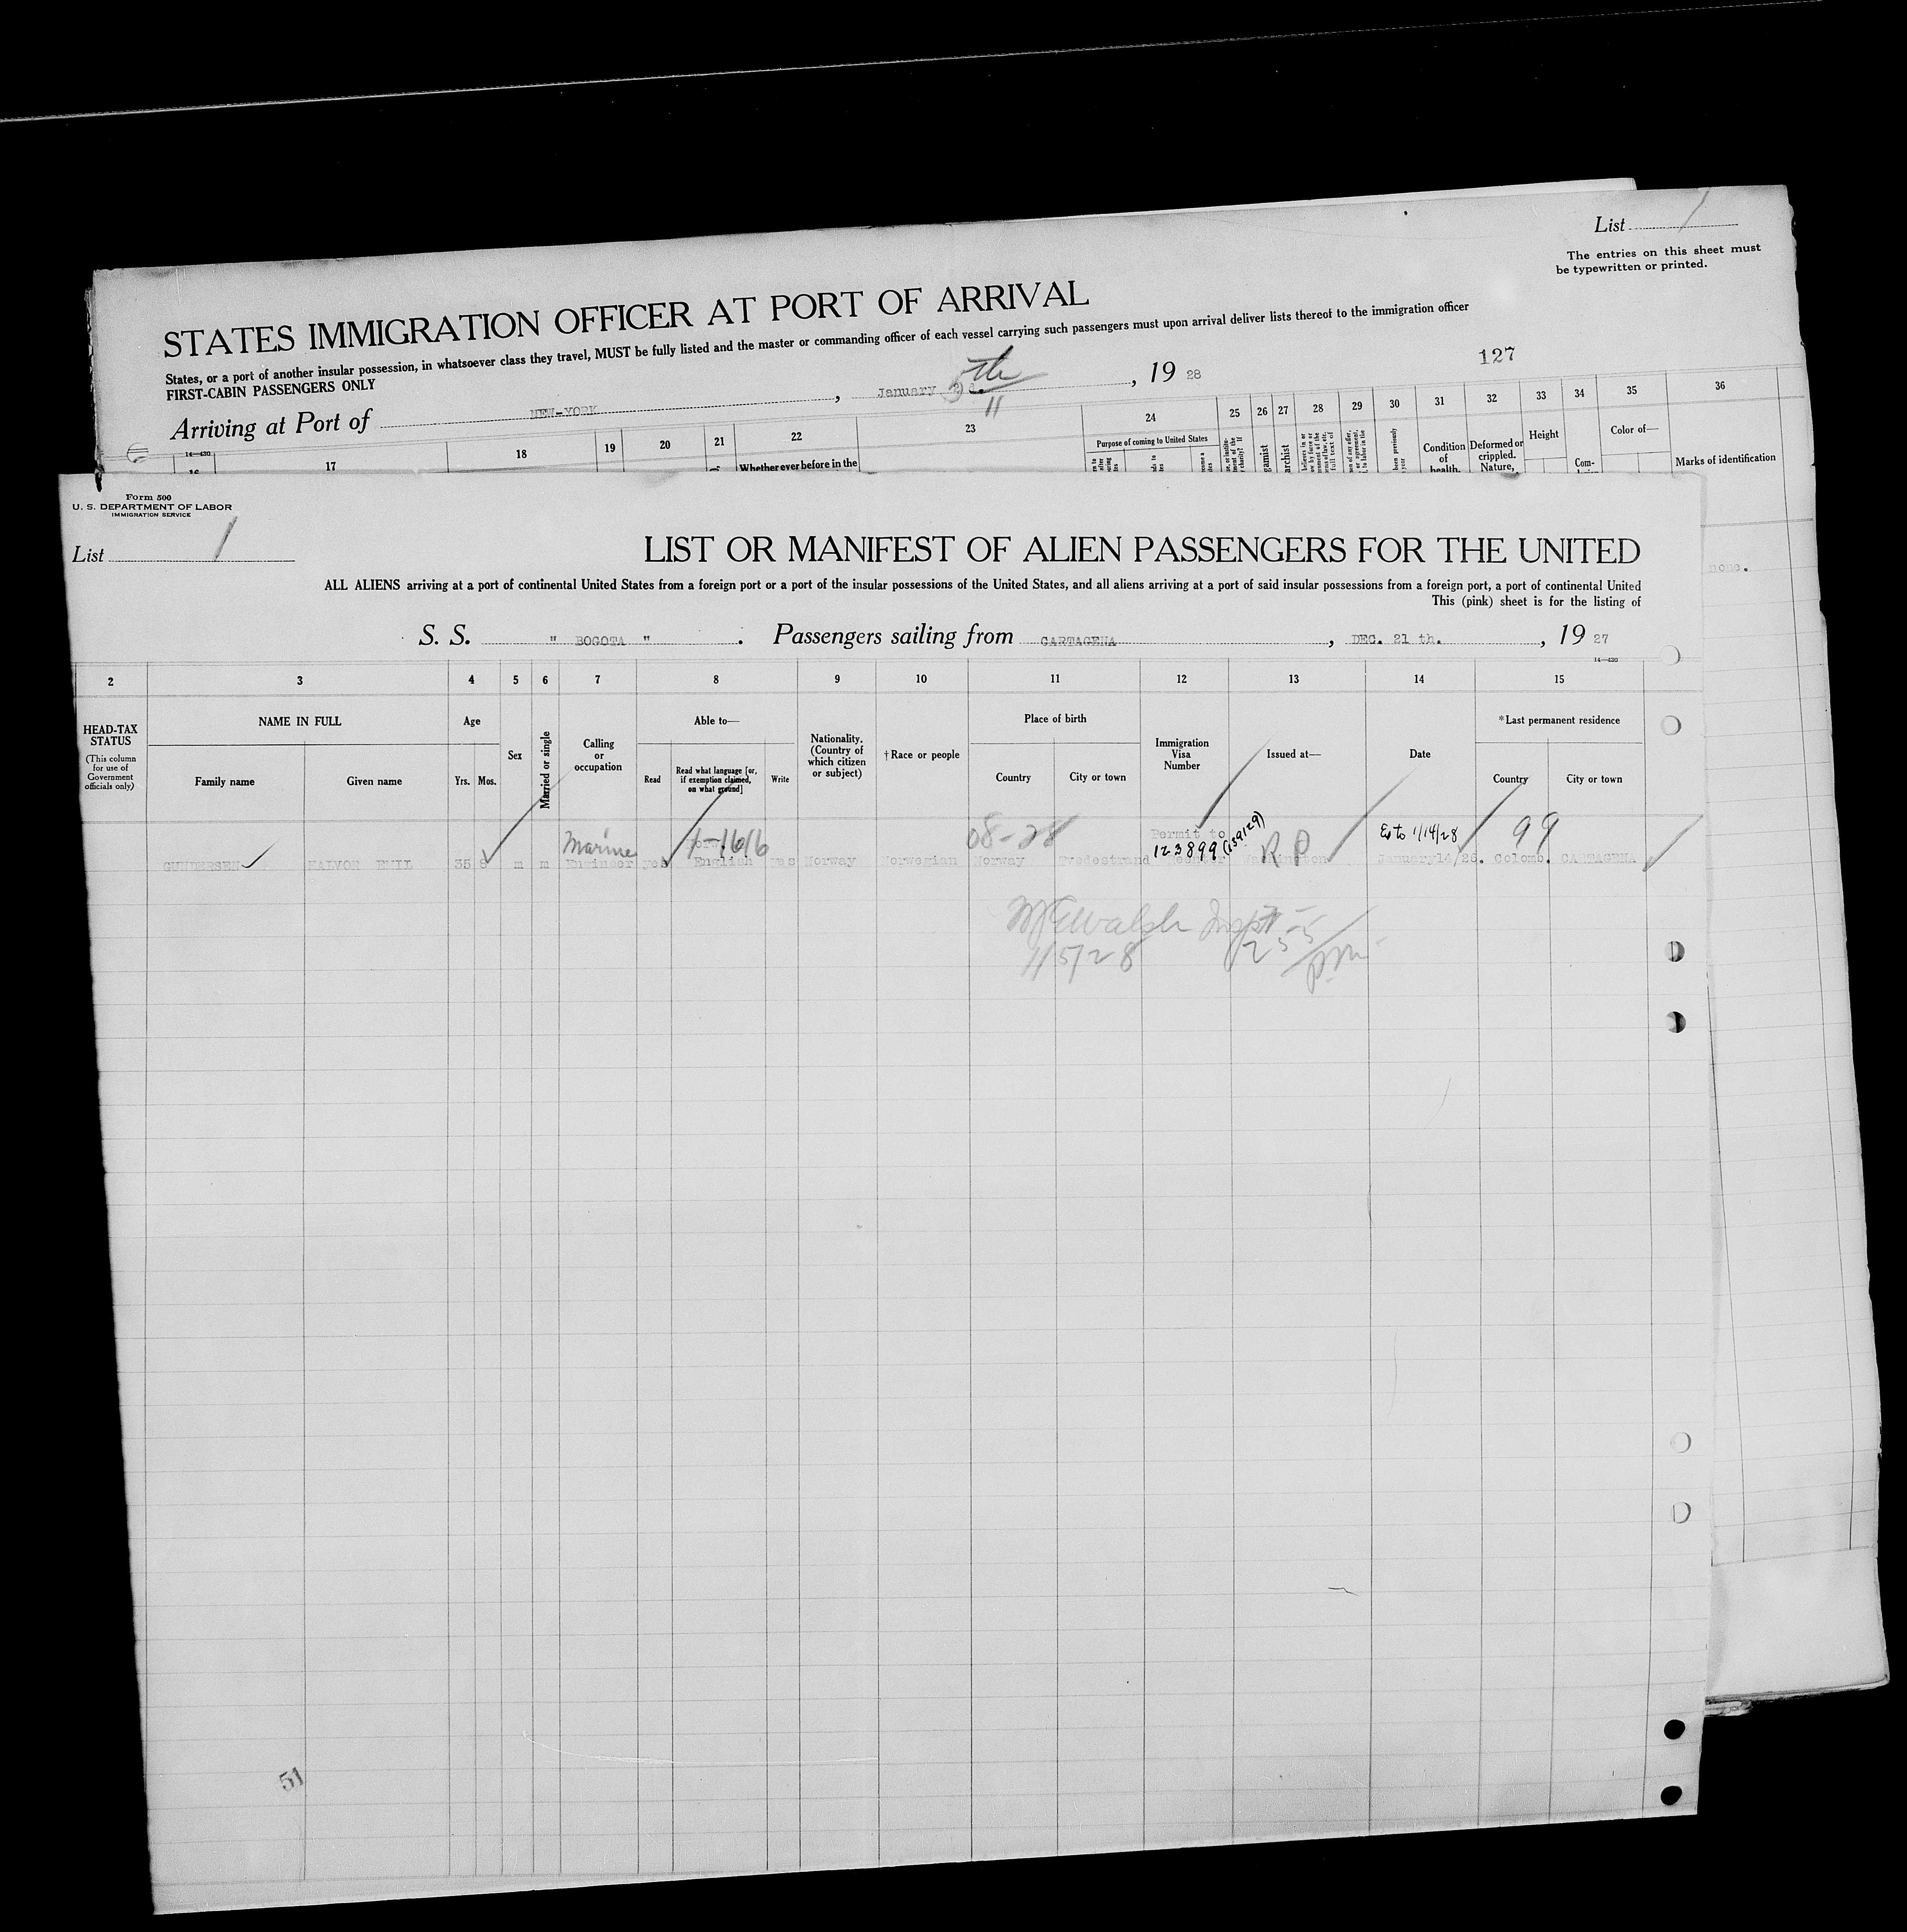 List /
The entries on this sheet must
be typewritten or printed.
STATES IMMIGRATION OFFICER AT PORT OF ARRIVAL
States, or a port of another insular possession, in whatsoever class they travel, MUST be fully listed and the master or commanding officer of each vessel carrying such passengers must upon arrival deliver lists thereof to the immigration officer
FIRST-CABIN PASSENGERS ONLY
127
Arriving at Port of NEW-YORK, January 5th, 19 28
11
14-430
16 17 18 19 20 21 22 23 24 25 26 27 28 29 30 31 32 33 34 35 36
Whether ever before in the
Purpose of coming to United States
Condition
of
health.
Deformed or
crippled.
Nature,
Height
Com-
Color of—
Marks of identification
none.
Form 500
U. S. DEPARTMENT OF LABOR
IMMIGRATION SERVICE
List /
LIST OR MANIFEST OF ALIEN PASSENGERS FOR THE UNITED
ALL ALIENS arriving at a port of continental United States from a foreign port or a port of the insular possessions of the United States, and all aliens arriving at a port of said insular possessions from a foreign port, a port of continental United
This (pink) sheet is for the listing of
S. S. " BOGOTA ". Passengers sailing from CARTAGENA, DEC. 21 th., 19 27
14-430
2 3 4 5 6 7 8 9 10 11 12 13 14 15
HEAD-TAX
STATUS
(This column
for use of
Government
officials only)
NAME IN FULL
Family name Given name
Age
Yrs. Mos.
Sex
Married or single
Calling
or
occupation
Able to—
Read
Read what language [or,
if exemption claimed,
on what ground]
Write
Nationality.
(Country of
which citizen
or subject)
†Race or people
Place of birth
Country City or town
Immigration
Visa
Number
Issued at—
Date
*Last permanent residence
Country City or town
Marine 1-1616 08-28 Permit to 123899 (159129) R P Ex to 1/14/28 99
GUNDERSEN HALVOR EMIL 35 8 m m Engineer yes English yes Norway Norwegian Norway Tvedestrand Washington January14/28. Colomb. CARTAGENA
McWalsh Inspt
1/5/28 255 pm
51